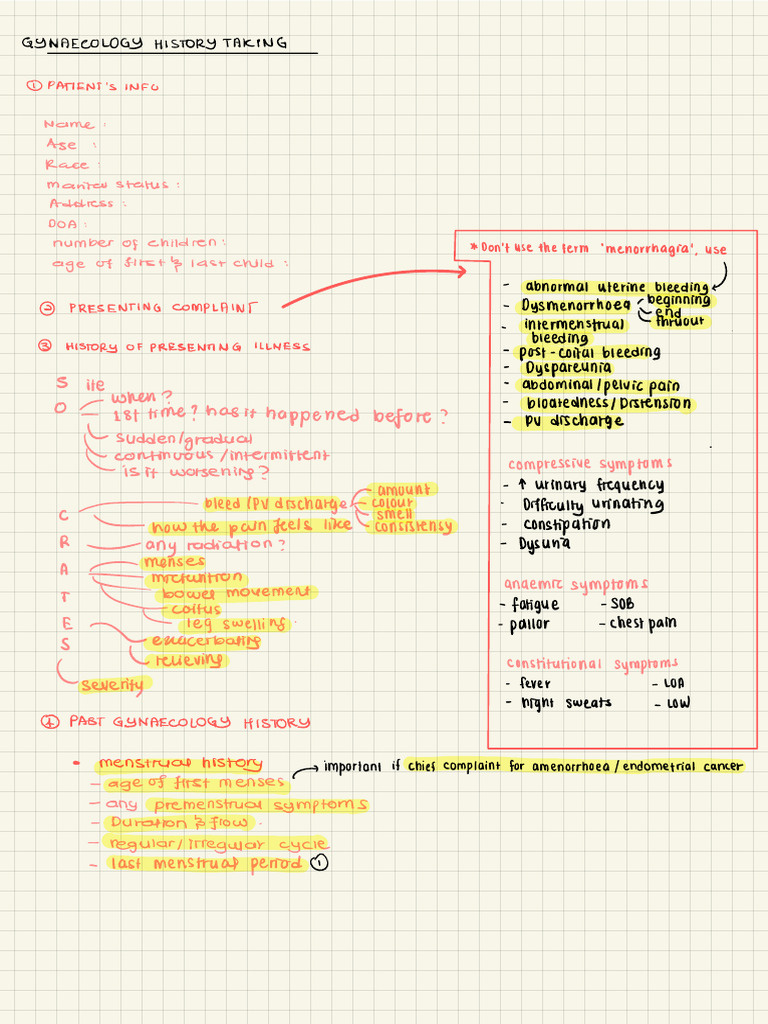 GYNAECOLOGY HISTORY TAKING
① PATIENT'S INFO
Name :
Age :
Race :
Marital status :
Address :
DOA :
number of children :
age of first & last child :
② PRESENTING COMPLAINT
③ HISTORY OF PRESENTING ILLNESS
S ite
O
when?
1st time? has it happened before?
sudden/gradual
continuous/intermittent
is it worsening?
C
bleed/PV discharge
amount
colour
smell
consistency
how the pain feels like
R any radiation?
A
menses
micturition
bowel movement
coitus
leg swelling
T
E
exacerbating
relieving
S
severity
④ PAST GYNAECOLOGY HISTORY
• menstrual history
- age of first menses
important if chief complaint for amenorrhoea/endometrial cancer
- any premenstrual symptoms
- Duration & flow
- regular/irregular cycle
- last menstrual period ①
* Don't use the term 'menorrhagia', use
- abnormal uterine bleeding
- Dysmenorrhoea
beginning
end
thruout
- intermenstrual
bleeding
- post-coital bleeding
- Dyspareunia
- abdominal/pelvic pain
- bloatedness/Distension
- PV discharge
compressive symptoms
- ↑ urinary frequency
- Difficulty urinating
- constipation
- Dysuria
anaemic symptoms
- fatigue - SOB
- pallor - chest pain
constitutional symptoms
- fever - LOA
- night sweats - LOW